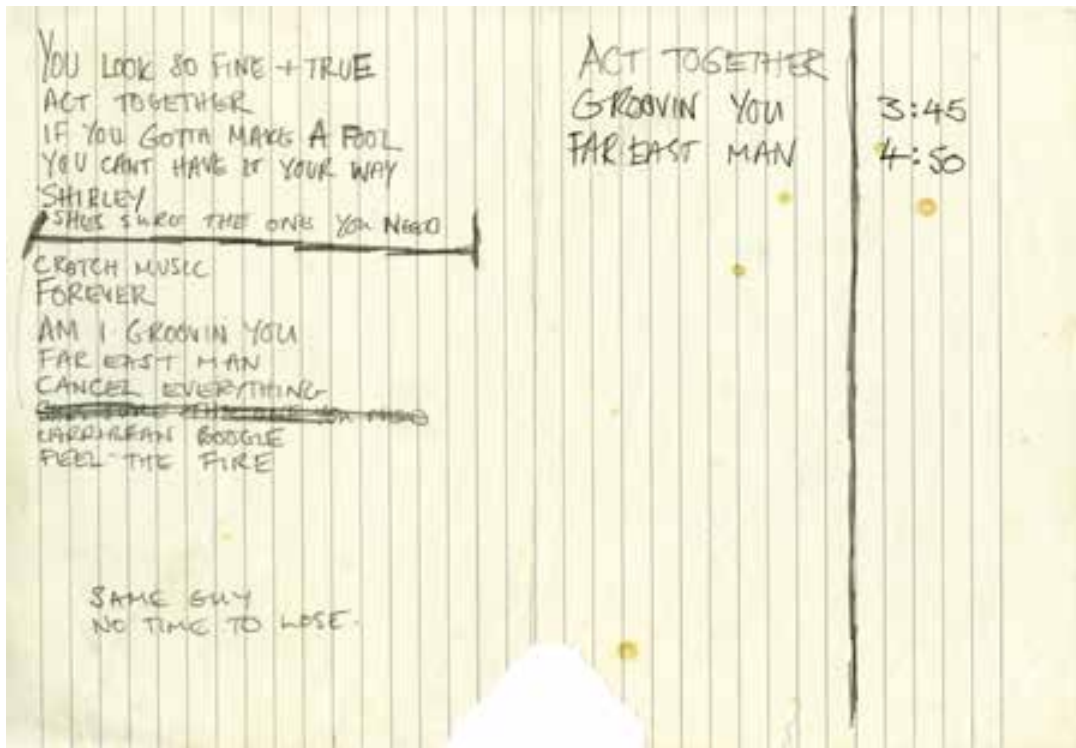 YOU LOOK SO FINE + TRUE
ACT TOGETHER
IF YOU GOTTA MAKE A FOOL
YOU CANT HAVE IT YOUR WAY
SHIRLEY
SHES SURE THE ONE YOU NEED
CROTCH MUSIC
FOREVER
AM I GROOVIN YOU
FAR EAST MAN
CANCEL EVERYTHING
CARRIBEAN BOOGIE
FEEL THE FIRE
SAME GUY
NO TIME TO LOSE.
ACT TOGETHER
GROOVIN YOU 3:45
FAR EAST MAN 4:50